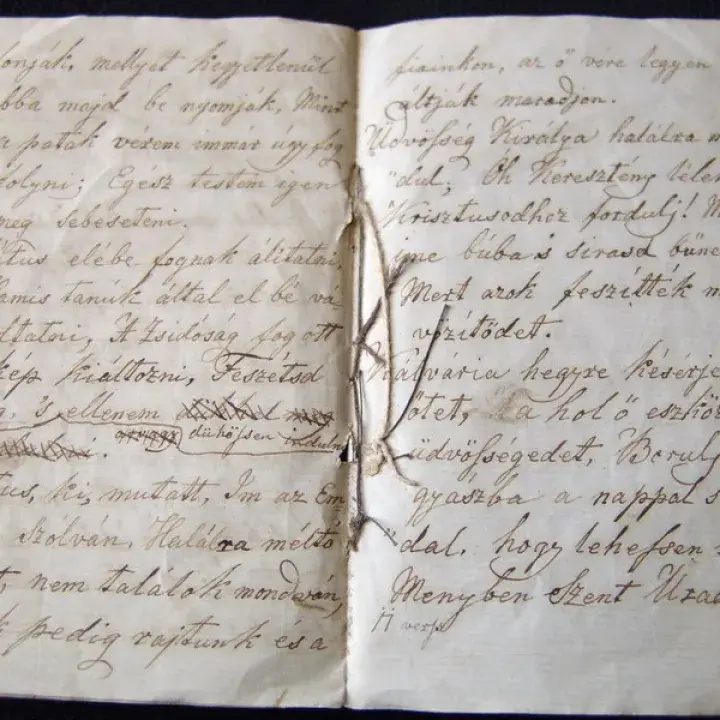 fonják, mellyet kegyetlenül
abba majd be nyomják, Mint
a patak vérem immár úgy fog
folyni; Egész testem igen
meg sebeseteni.
átus elébe fognak álitatni,
amis tanúk által el bé vá-
oltatni, A Zsidóság fog ott
kép kiáltozni, Feszétsd
's ellenem
dühöſsen indulni
.
tus, ki, mutatt, Im az Em-
Szólván, Halálra méltó
nem találok mondván,
k pedig rajtunk és a
fiainkon, az ő vére legyen
áltják maradjon.
Üdvöſség Királya halálra
dul; Oh Keresztény lélek
Krisztusodhoz fordulj!
ime búba is sirasd büne
Mert azok feszítték
vözítödet.
Kálvária hegyre késérje
őtet, a hol ő eszkö
üdvöſségedet, Borulj
gyászba a nappal s
dal, hogy leheſsen
Menyben Szent Ura
11 vers